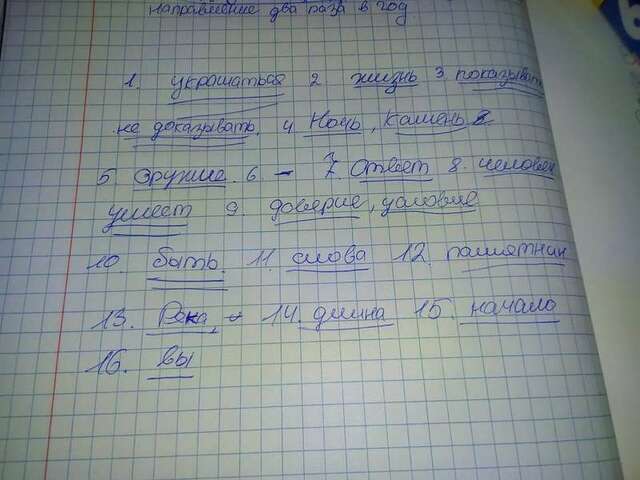 направление два раза в год
1. украшаться 2. жизнь 3. показывать
не доказывать. 4 Ночь, Камень
5. Оружие. 6 – 7. Ответ 8. человек
умеет 9. доверие, условие
10. быть. 11. слова 12. памятник
13. Река, 14. длина 15. начало
16. вы